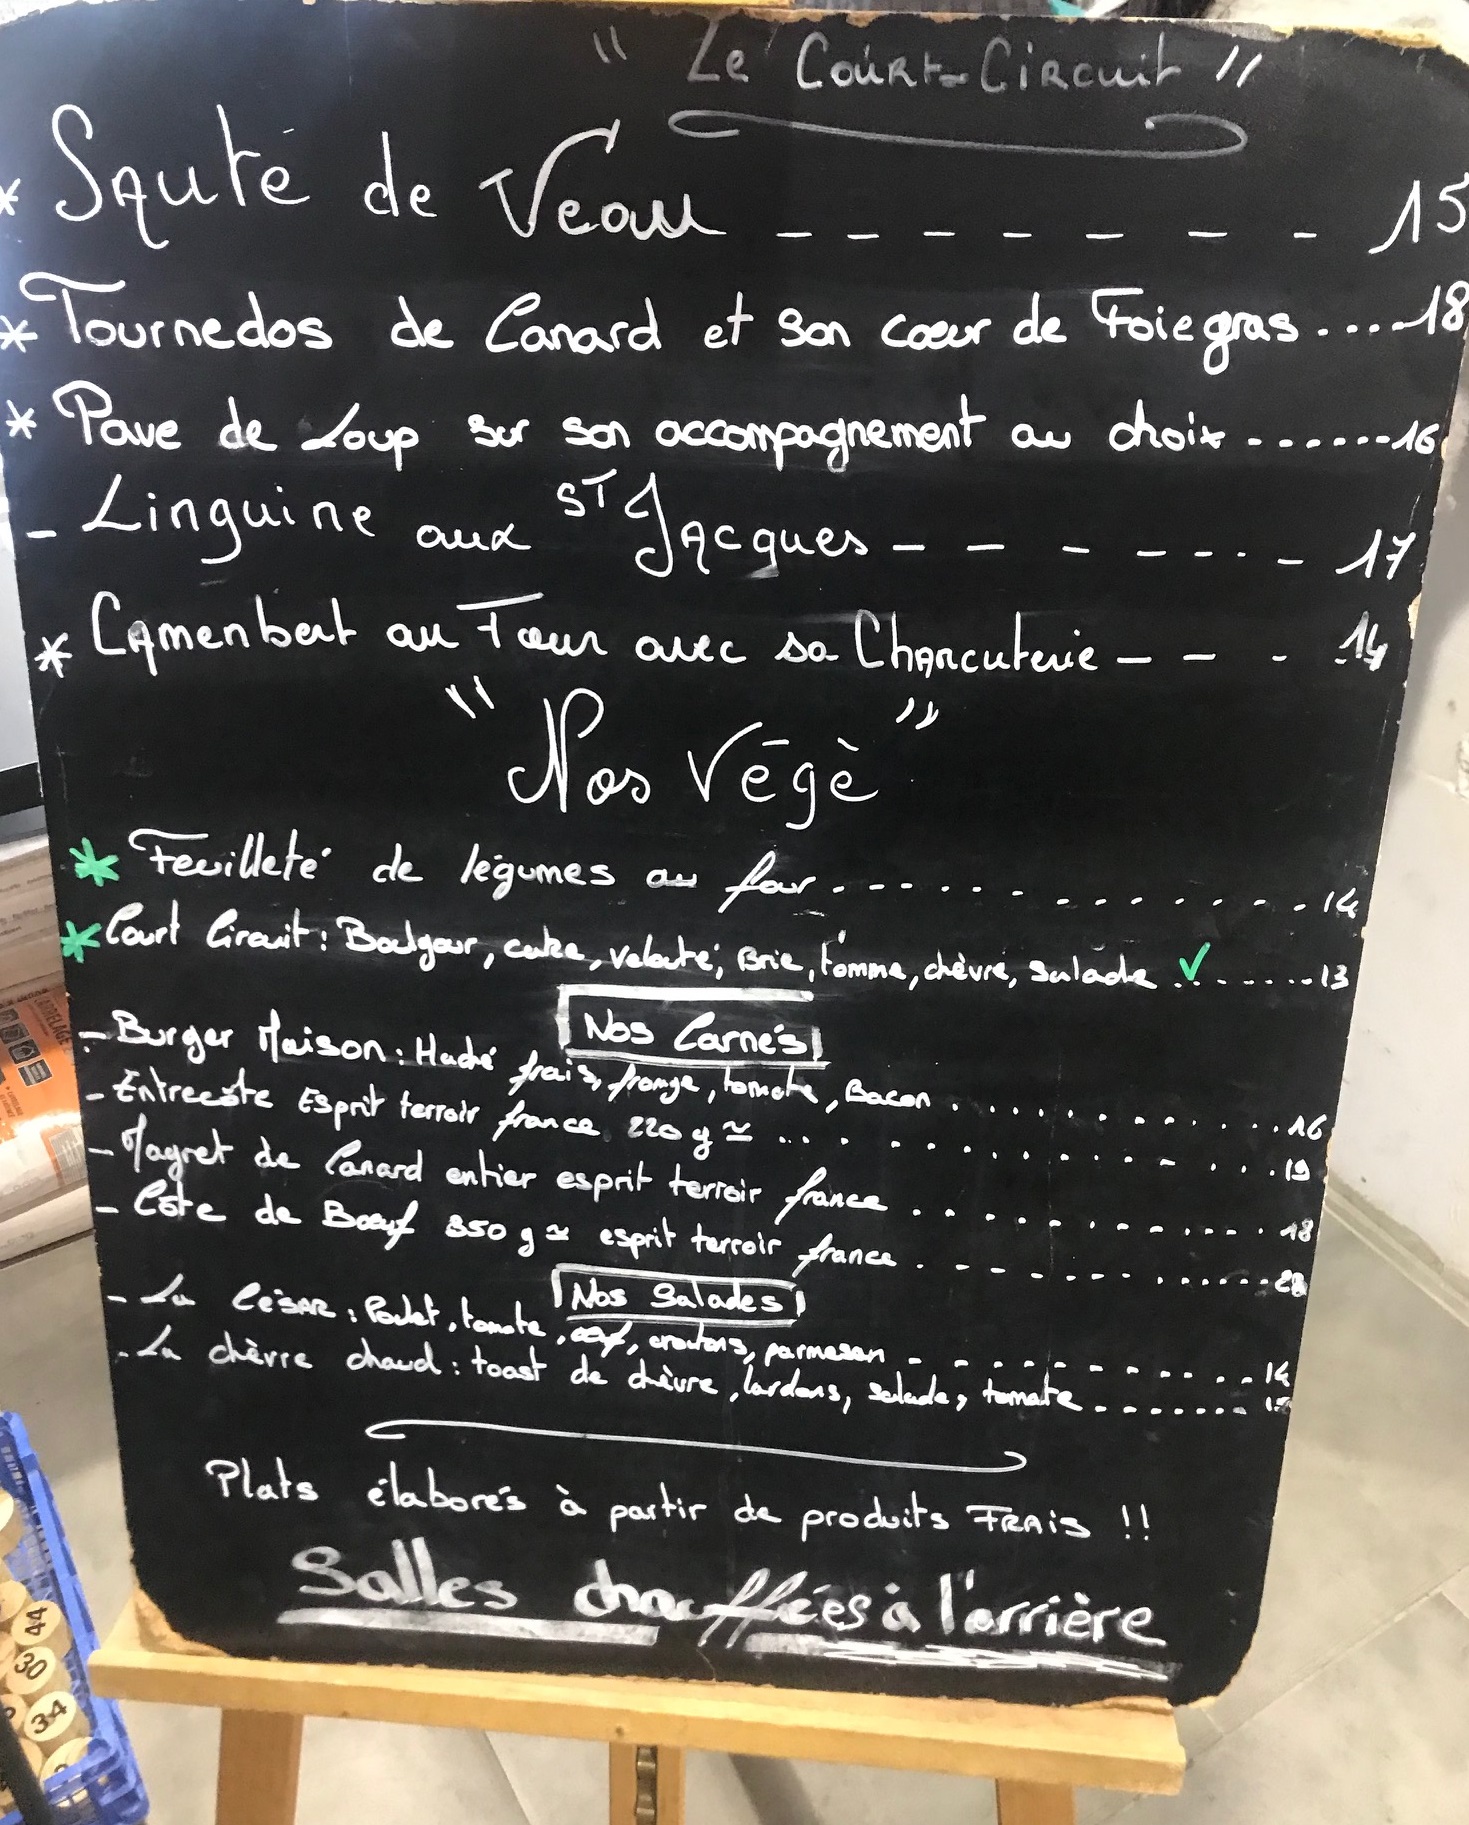 " Le Court-Circuit "
* Sauté de Veau _ _ _ _ _ _ _ 15
* Tournedos de Canard et Son cœur de Foie gras ....18
* Pave de Loup sur son accompagnement au choix ......16
- Linguine aux ST Jacques - - - - - - - 17
* Camenbert au Four avec sa Charcuterie - - - 14
" Nos Végè "
* Feuilleté de légumes au four ................ 14
* Court Circuit : Boulgour, cake, velouté, Brie, tomme, chèvre, Salade ✓ ......13
Nos Carnés
- Burger Maison : Haché frais, fromge, tomate, Bacon ............16
- Entrecôte Esprit terroir france 220 g ≃ ............19
- Magret de Canard entier esprit terroir france ............18
- Côte de Bœuf 350 g ≃ esprit terroir france ............
Nos Salades
- La César : Poulet, tomate, œuf, croutons, parmesan ............14
- La chèvre chaud : toast de chèvre, lardons, salade, tomate .......
Plats élaborés à partir de produits FRAIS !!
Salles chauffées à l'arrière
CARRELAGE
44
30
34